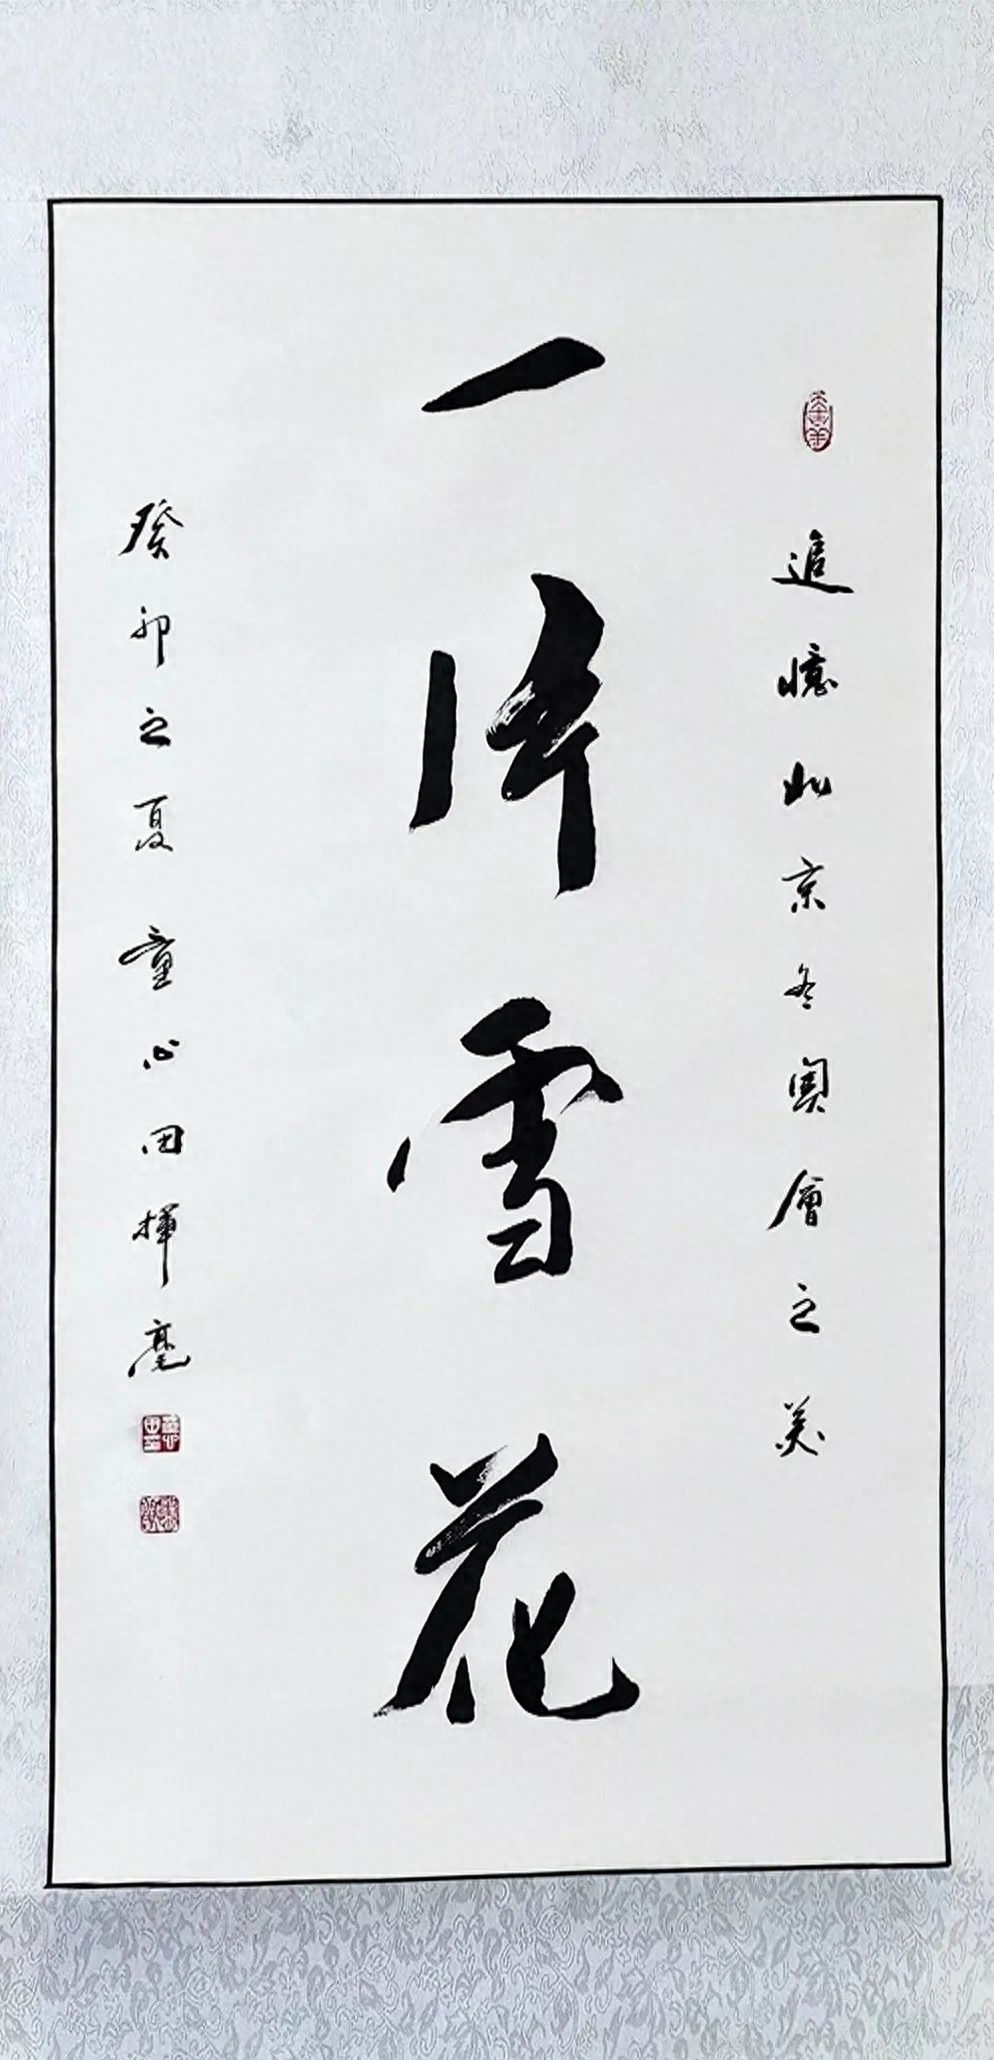 追憶北京冬奧會之美
一片雪花
癸卯之夏童心田揮毫